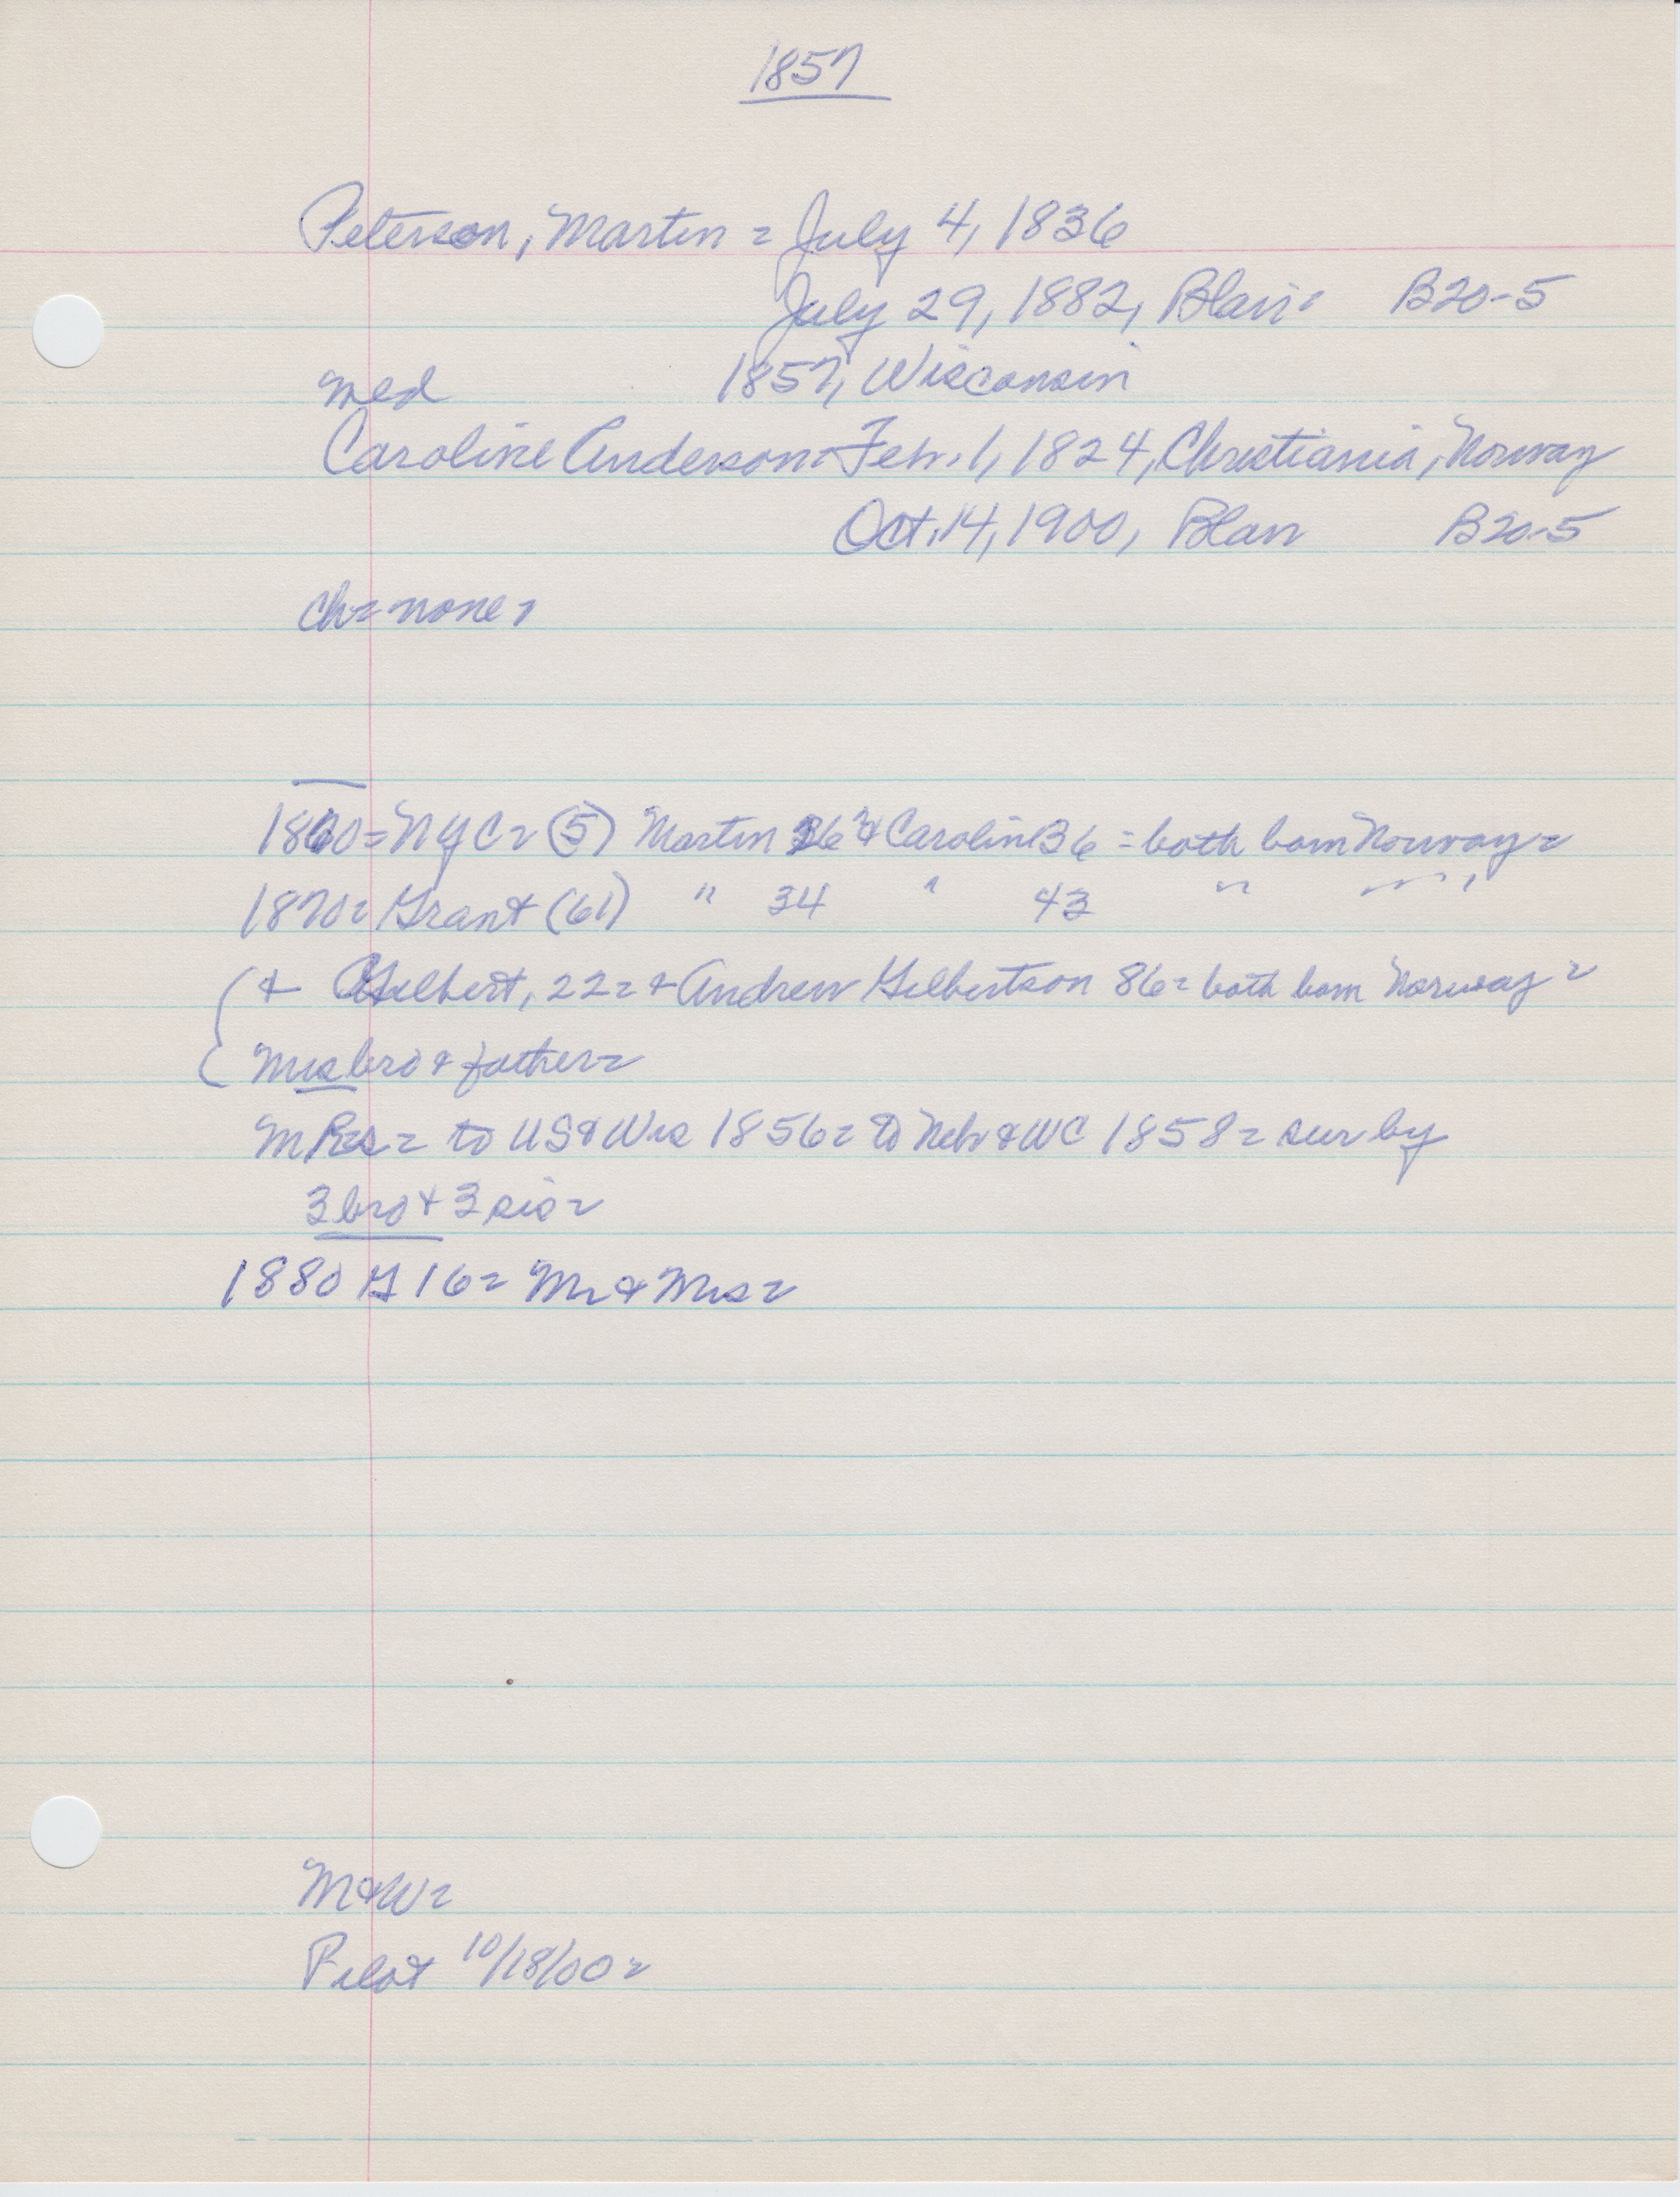 1857
Peterson, Martin = July 4, 1836
July 29, 1882, Blair = B20-5
med 1857, Wisconsin
Caroline Anderson = Feb. 1, 1824, Christiania, Norway
Oct. 14, 1900, Blair B20-5
ch = none =
1860 = NYC = (5) Martin 26 & Carolin 36 = both born Norway =
1870 = Grant (61) " 34 " 43 " "
& Gilbert, 22 = & Andrew Gilbertson 86 = both born Norway =
Mrs bro & father =
MRs = to US & Wis 1856 = to Nebr & WC 1858 = sur by
3 bro & 3 sis =
1880 G 16 = Mr & Mrs =
M&W =
Pilot 10/18/00 =